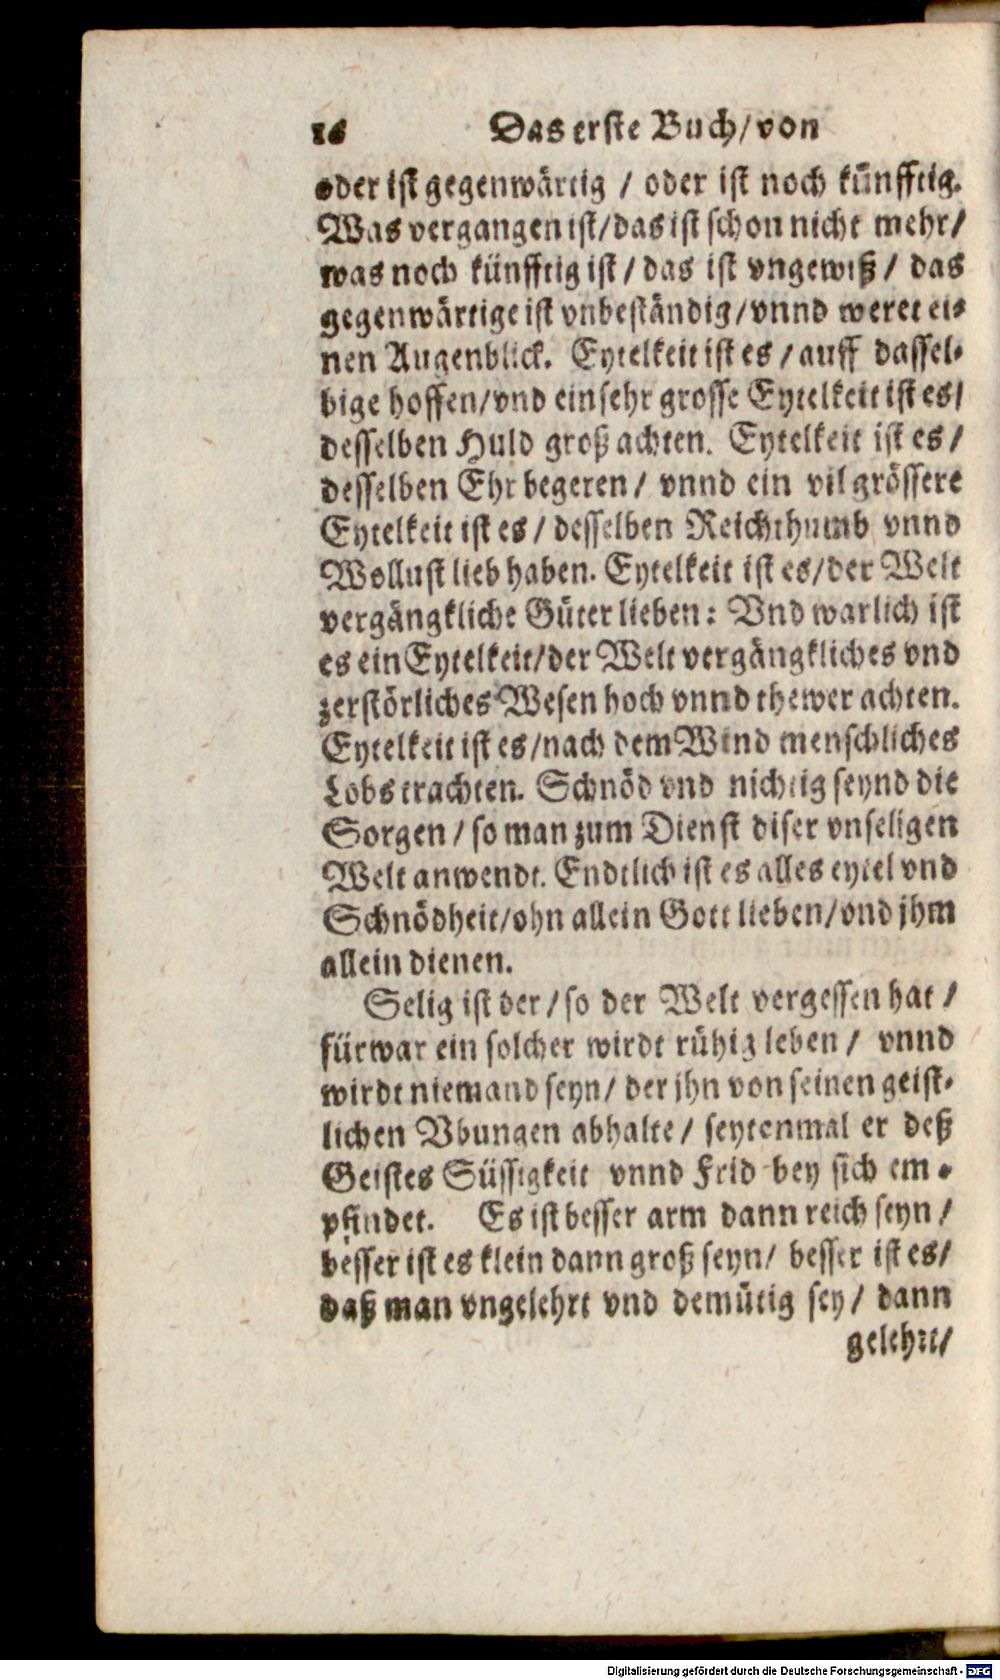 16 Das erste Buch/von
oder ist gegenwärtig / oder ist noch künfftig.
Was vergangen ist/das ist schon nicht mehr/
was noch künfftig ist / das ist vngewiß / das
gegenwärtige ist vnbeständig/vnnd weret ei-
nen Augenblick. Eytelkeit ist es / auff dassel-
bige hoffen/vnd ein sehr grosse Eytelkeit ist es/
desselben Huld groß achten. Eytelkeit ist es /
desselben Ehr begeren / vnnd ein vil grössere
Eytelkeit ist es / desselben Reichthumb vnnd
Wollust lieb haben. Eytelkeit ist es/der Welt
vergängkliche Güter lieben: Vnd warlich ist
es ein Eytelkeit/der Welt vergängkliches vnd
zerstörliches Wesen hoch vnnd thewer achten.
Eytelkeit ist es/nach dem Wind menschliches
Lobs trachten. Schnöd vnd nichtig seynd die
Sorgen / so man zum Dienst diser vnseligen
Welt anwendt. Endtlich ist es alles eytel vnd
Schnödheit/ohn allein Gott lieben/vnd jhm
allein dienen.
Selig ist der / so der Welt vergessen hat /
fürwar ein solcher wirdt rühig leben / vnnd
wirdt niemand seyn/ der jhn von seinen geist-
lichen Vbungen abhalte / seytenmal er deß
Geistes Süssigkeit vnnd Frid bey sich em-
pfindet. Es ist besser arm dann reich seyn /
besser ist es klein dann groß seyn/ besser ist es/
daß man vngelehrt vnd demütig sey / dann
gelehrt/
Digitalisierung gefördert durch die Deutsche Forschungsgemeinschaft - DFG